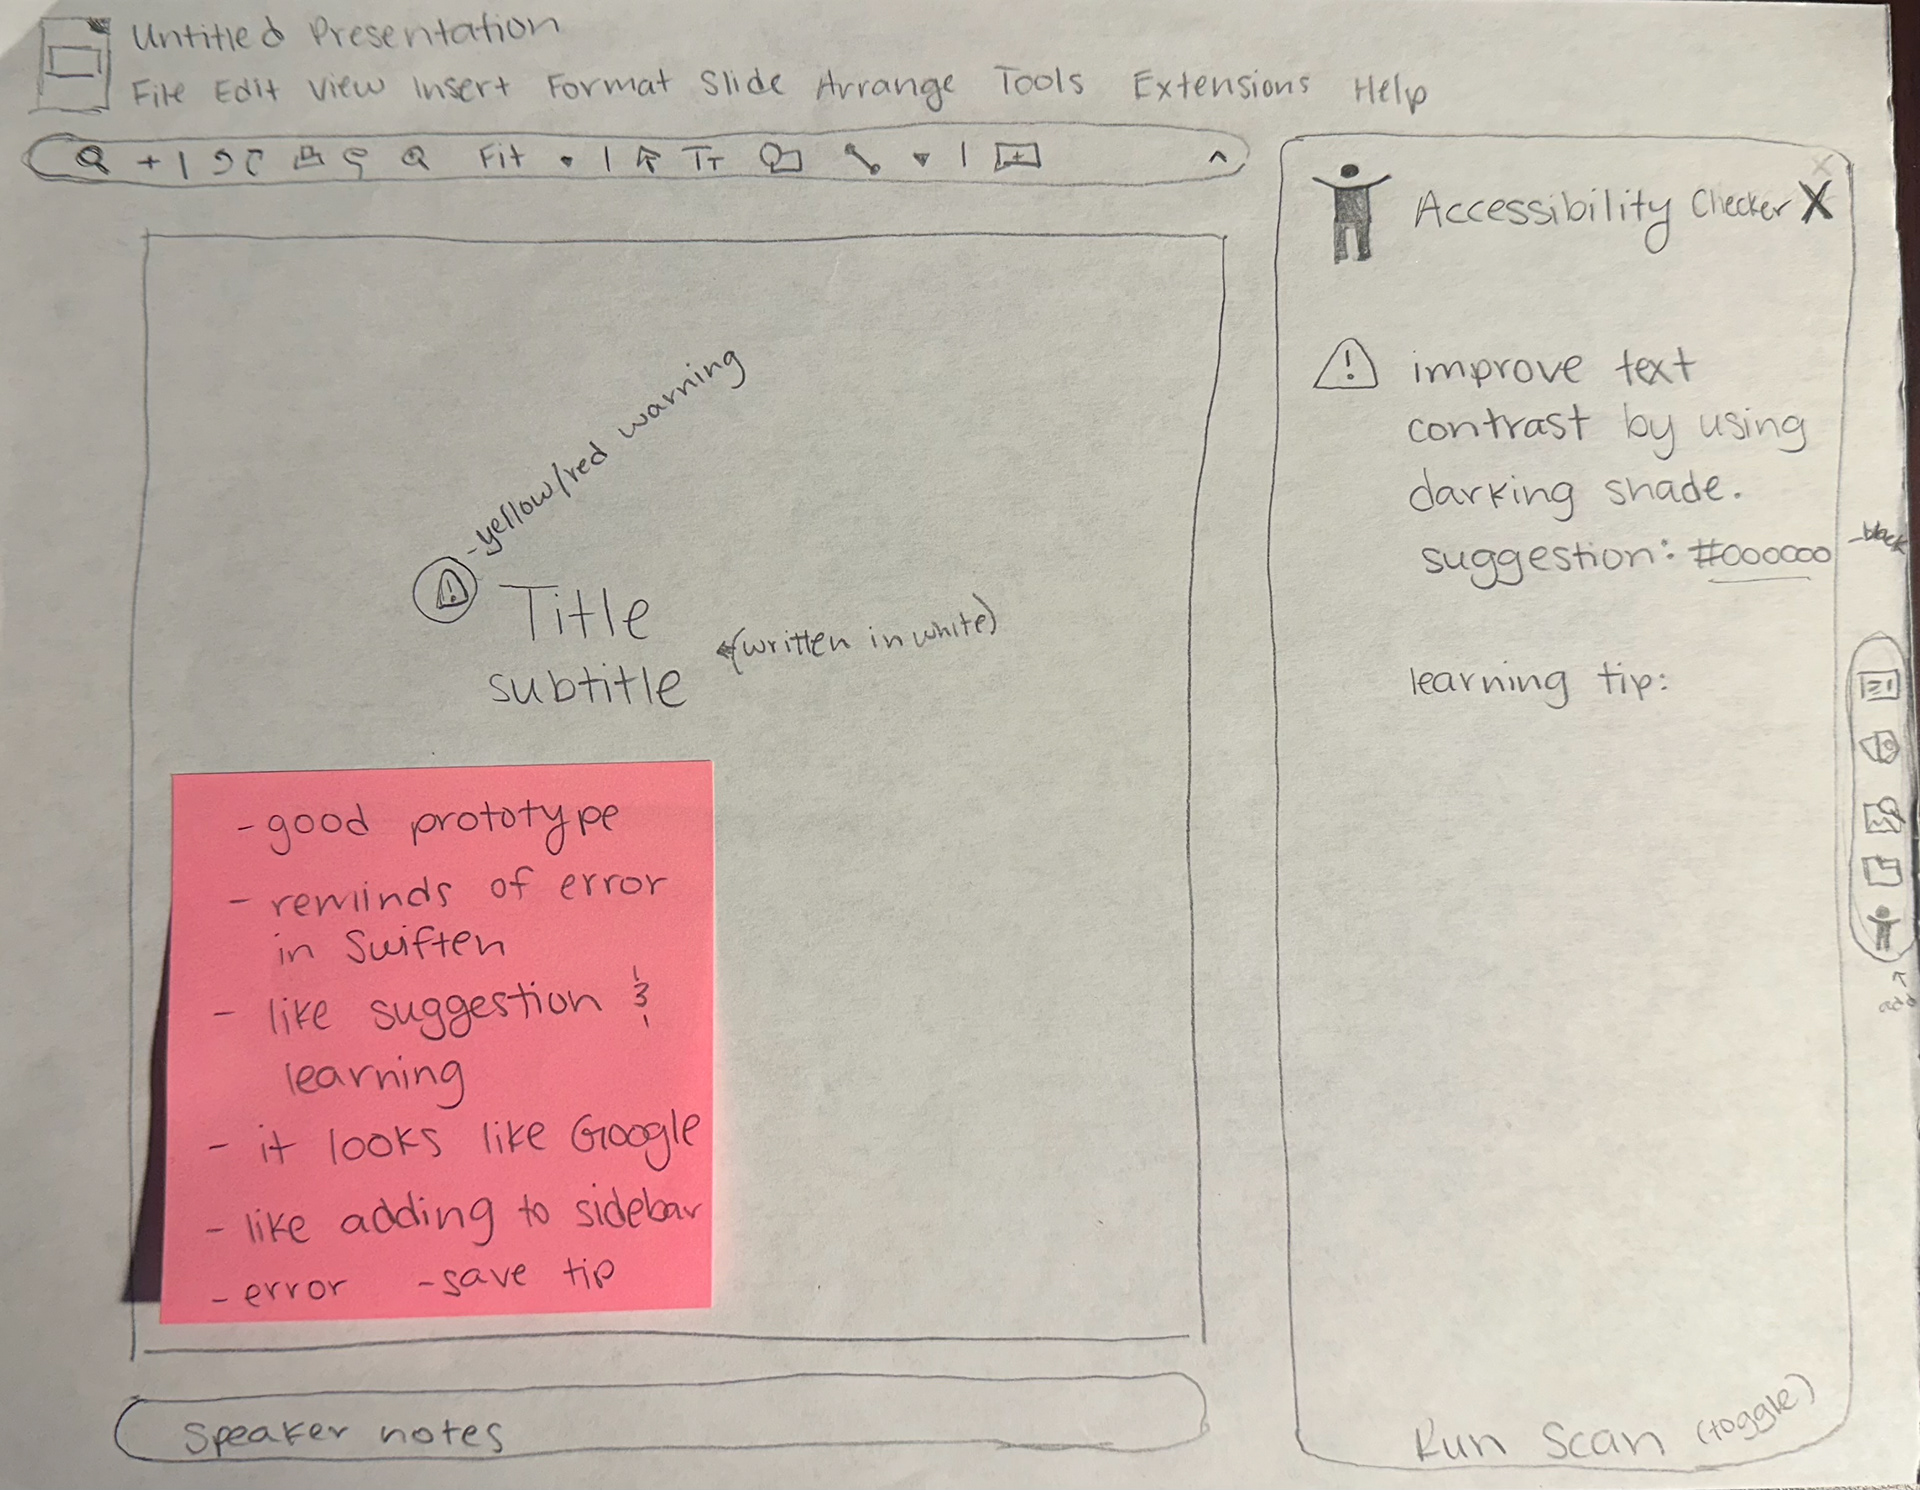 Untitled Presentation
File Edit View Insert Format Slide Arrange Tools Extensions Help
Fit
TT
Accessibility Checker X
improve text
contrast by using
darking shade.
suggestion: #000000
-black
learning tip:
-yellow/red warning
Title
subtitle
(written in white)
- good prototype
- reminds of error
in Swiften
- like suggestion &
learning
- it looks like Google
- like adding to sidebar
- error - save tip
add
Speaker notes
Run Scan (toggle)